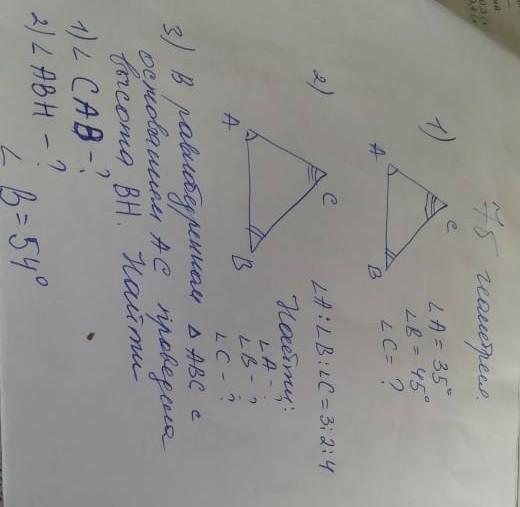 7б геометрия.
1)
A
C
B
∠A = 35°
∠B = 45°
∠C = ?
2)
A
C
B
∠A : ∠B : ∠C = 3 : 2 : 4
Найти:
∠A - ?
∠B - ?
∠C - ?
3) В равнобуренном △ ABC с
основанием AC проведена
высота BH. Найти
1) ∠ CAB - ?
2) ∠ ABH - ?
∠ B = 54°